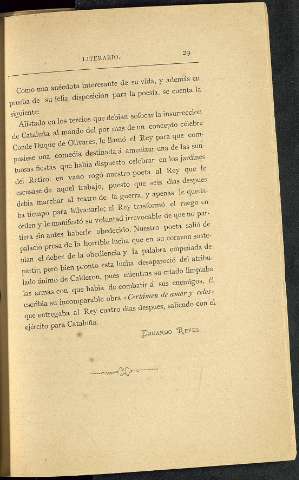 LITERARIO. 29
Como una anécdota interesante de su vida, y además en
prueba de su feliz disposición para la poesía, se cuenta la
siguiente:
Alistado en los tercios que debían sofocar la insurrección
de Cataluña al mando del por más de un concepto célebre
Conde Duque de Olivares, le llamó el Rey para que com-
pusiese una comedia destinada á amenizar una de las sun-
tuosas fiestas que había dispuesto celebrar en los jardines
del Retiro: en vano rogó nuestro poeta al Rey que le
excusase de aquel trabajo, puesto que seis días después
debía marchar al teatro de la guerra, y apenas le queda-
ba tiempo para hilvanarle; el Rey trasformó el ruego en
orden y le manifestó su voluntad irrevocable de que no par-
tiera sin antes haberle obedecido. Nuestro poeta salió de
palacio presa de la horrible lucha que en su corazón soste-
nían el deber de la obediencia y la palabra empeñada de
partir, pero bien pronto esta lucha desapareció del atribu-
lado ánimo de Calderón, pues mientras su criado limpiaba
las armas con que había de combatir á sus enemigos, él
escribía su incomparable obra «Certámen de amor y celos»
que entregaba al Rey cuatro días después, saliendo con el
ejército para Cataluña.
EDUARDO REYES